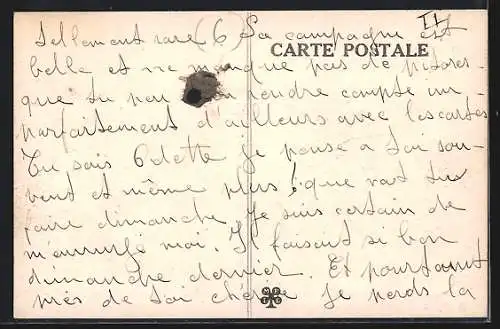 tellement rare (6) La campagne est II
CARTE POSTALE
belle et ne manque pas de pitores-
que tu peu rendre compte im-
parfaitement d'ailleurs avec les cartes
Tu sais Odette je pense a toi sou-
vent et même plus! que vas tu
faire dimanche. Je suis certain de
m'ennuyé moi. Il faisait si bon
dimanche dernier. Et pourtant
près de toi chérie je perds la